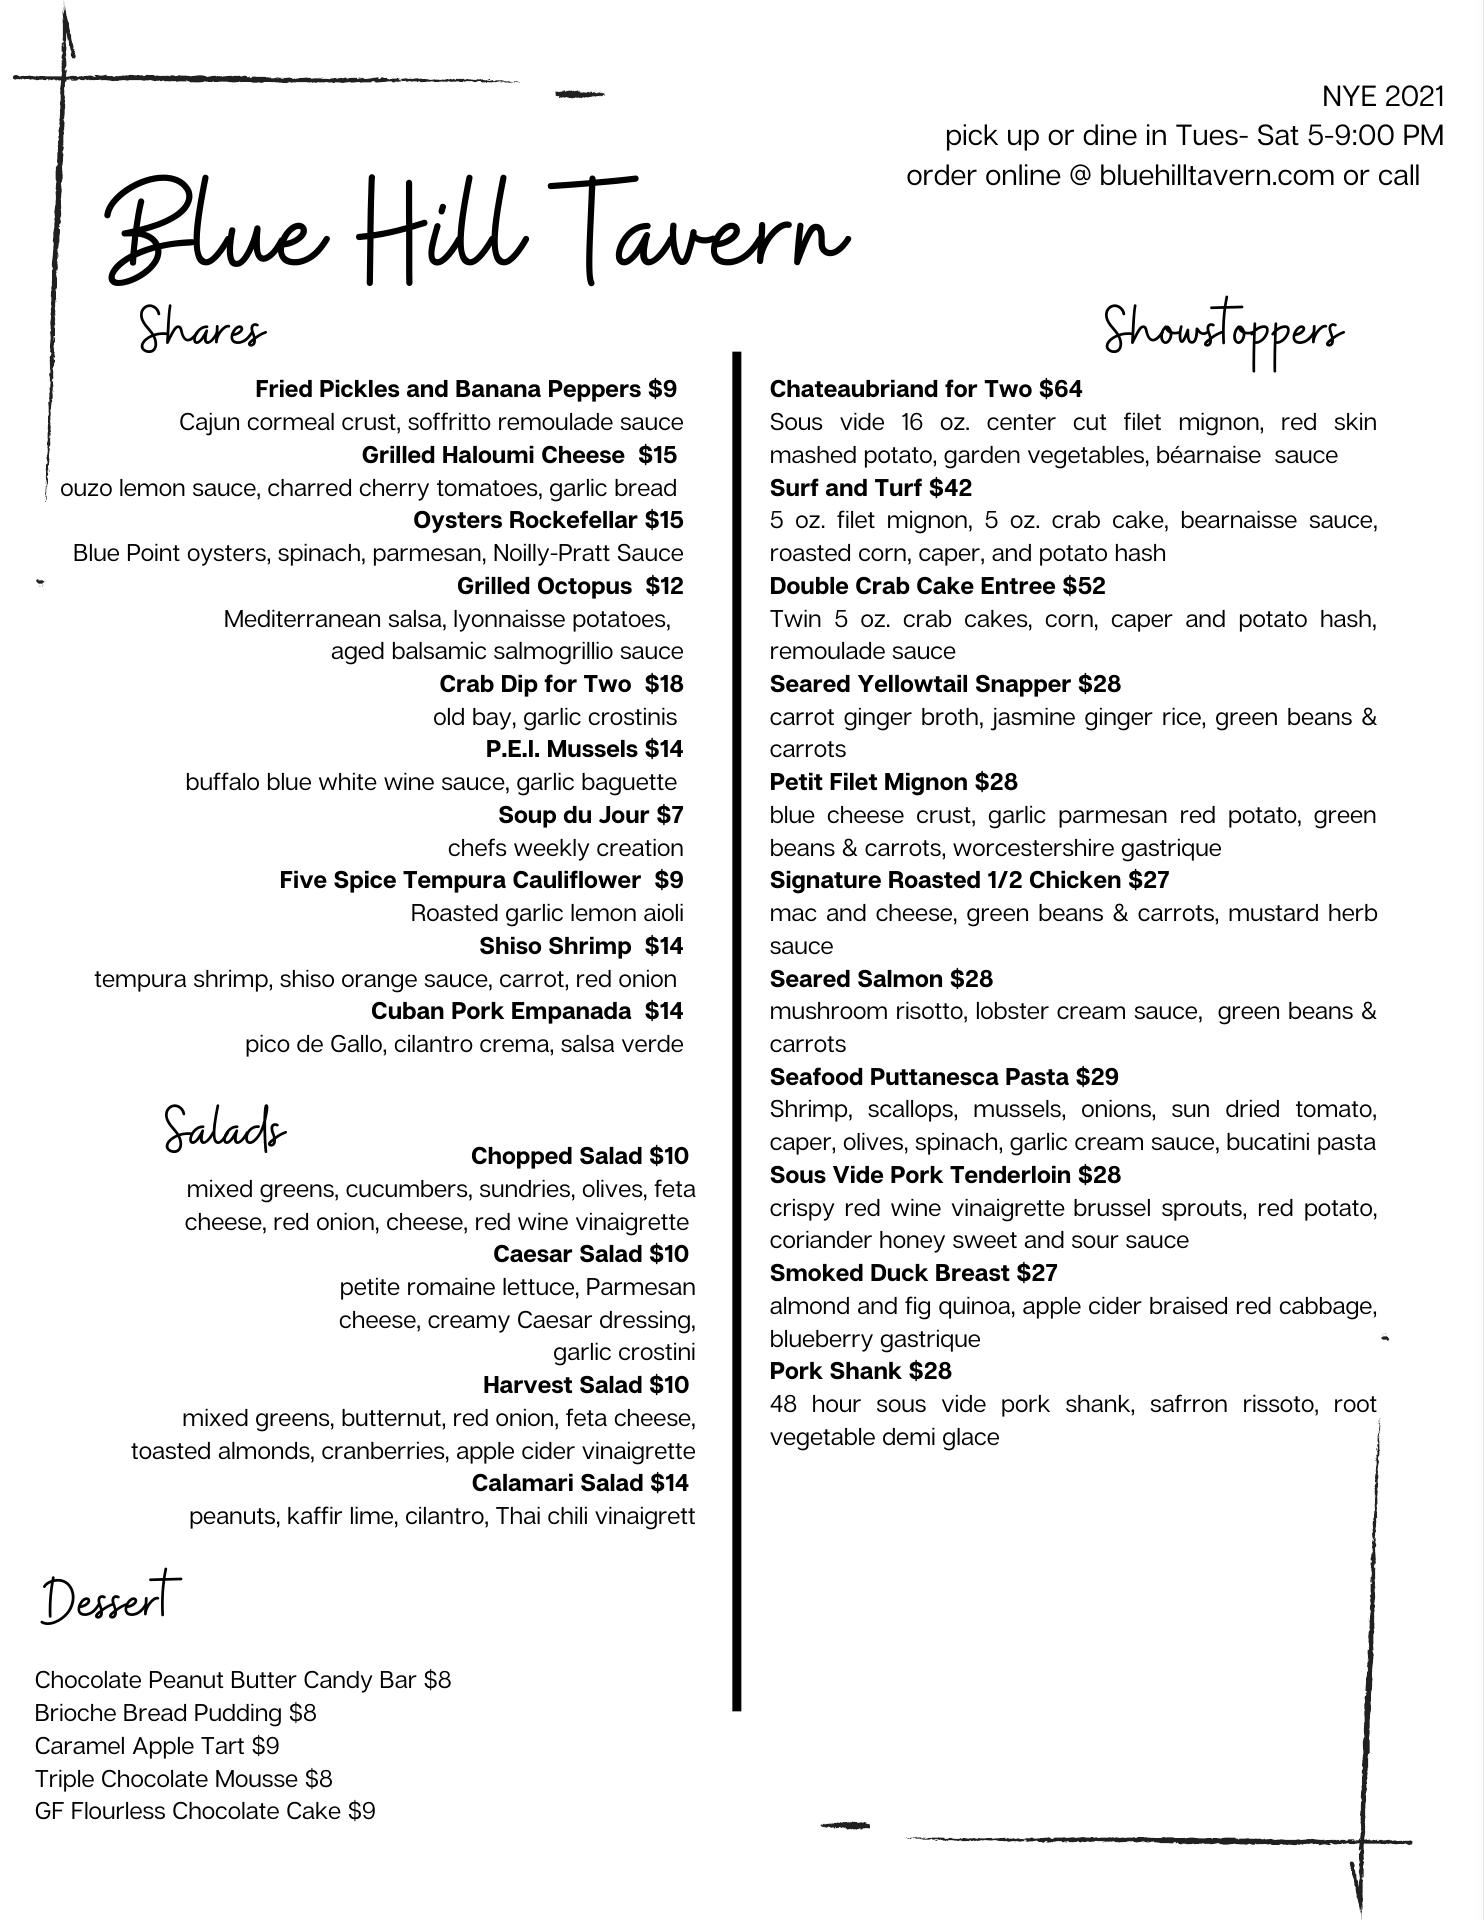 NYE 2021
pick up or dine in Tues- Sat 5-9:00 PM
order online @ bluehilltavern.com or call
Blue Hill Tavern
Shares
Fried Pickles and Banana Peppers $9
Cajun cormeal crust, soffritto remoulade sauce
Grilled Haloumi Cheese $15
ouzo lemon sauce, charred cherry tomatoes, garlic bread
Oysters Rockefellar $15
Blue Point oysters, spinach, parmesan, Noilly-Pratt Sauce
Grilled Octopus $12
Mediterranean salsa, lyonnaisse potatoes,
aged balsamic salmogrillio sauce
Crab Dip for Two $18
old bay, garlic crostinis
P.E.I. Mussels $14
buffalo blue white wine sauce, garlic baguette
Soup du Jour $7
chefs weekly creation
Five Spice Tempura Cauliflower $9
Roasted garlic lemon aioli
Shiso Shrimp $14
tempura shrimp, shiso orange sauce, carrot, red onion
Cuban Pork Empanada $14
pico de Gallo, cilantro crema, salsa verde
Salads
Chopped Salad $10
mixed greens, cucumbers, sundries, olives, feta
cheese, red onion, cheese, red wine vinaigrette
Caesar Salad $10
petite romaine lettuce, Parmesan
cheese, creamy Caesar dressing,
garlic crostini
Harvest Salad $10
mixed greens, butternut, red onion, feta cheese,
toasted almonds, cranberries, apple cider vinaigrette
Calamari Salad $14
peanuts, kaffir lime, cilantro, Thai chili vinaigrett
Dessert
Chocolate Peanut Butter Candy Bar $8
Brioche Bread Pudding $8
Caramel Apple Tart $9
Triple Chocolate Mousse $8
GF Flourless Chocolate Cake $9
Showstoppers
Chateaubriand for Two $64
Sous vide 16 oz. center cut filet mignon, red skin
mashed potato, garden vegetables, béarnaise sauce
Surf and Turf $42
5 oz. filet mignon, 5 oz. crab cake, bearnaisse sauce,
roasted corn, caper, and potato hash
Double Crab Cake Entree $52
Twin 5 oz. crab cakes, corn, caper and potato hash,
remoulade sauce
Seared Yellowtail Snapper $28
carrot ginger broth, jasmine ginger rice, green beans &
carrots
Petit Filet Mignon $28
blue cheese crust, garlic parmesan red potato, green
beans & carrots, worcestershire gastrique
Signature Roasted 1/2 Chicken $27
mac and cheese, green beans & carrots, mustard herb
sauce
Seared Salmon $28
mushroom risotto, lobster cream sauce, green beans &
carrots
Seafood Puttanesca Pasta $29
Shrimp, scallops, mussels, onions, sun dried tomato,
caper, olives, spinach, garlic cream sauce, bucatini pasta
Sous Vide Pork Tenderloin $28
crispy red wine vinaigrette brussel sprouts, red potato,
coriander honey sweet and sour sauce
Smoked Duck Breast $27
almond and fig quinoa, apple cider braised red cabbage,
blueberry gastrique
Pork Shank $28
48 hour sous vide pork shank, safrron rissoto, root
vegetable demi glace